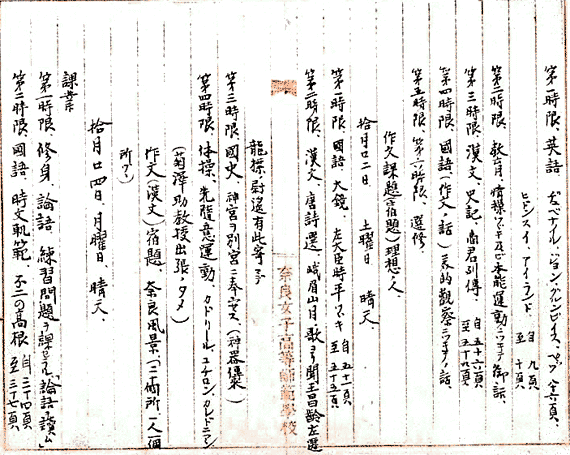 第一時限、英語
自 九頁
至 十頁
第二時限、教育、情操ノツヾキ及ビ本能運動ニツキテノ御話、
第三時限、漢文、史記、商君列傳 自五十六頁 至五十九頁
第四時限、國語(作文ノ話)美的觀察ニツキテノ話、
第五時限、第六時限、選修
作文課題(宿題)理想ノ人、
拾月廿二日 土曜日 晴天、
第一時限、國語、大鏡、左大臣時平ノツヾキ 自五十一頁 至五十五頁
第二時限、漢文、唐詩選 峨眉山月歌ヨリ聞王昌齡左遷
龍標尉遙有此寄マデ
奈良女子高等師範學校
第三時限、國史、神宮ヲ別宮ニ奉安ス、(神器傳來)
第四時限、体操、先隨意運動、カドリール、
(菊澤助教授出張ノタメ)
作文(漢文)宿題、奈良風景、(一二個所、一人一個
所ヅヽ)
拾月廿四日、月曜日、晴天、
課業
第一時限、修身、論語、練習問題ヲ課セラル「論語ヲ讀ム」
第二時限、國語、時文軌範、不二の高根 自三十四頁 至三十七頁